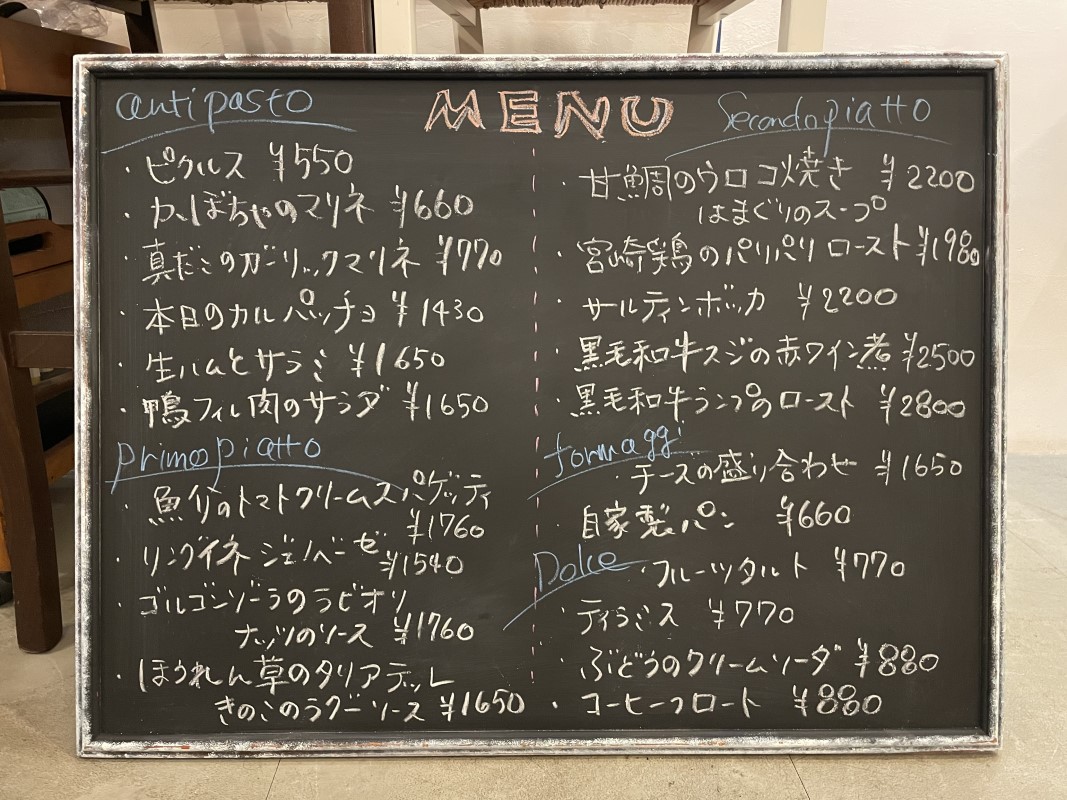 MENU
antipasto
・ピクルス ¥550
・かぼちゃのマリネ ¥660
・真だこのガーリックマリネ ¥770
・本日のカルパッチョ ¥1430
・生ハムとサラミ ¥1650
・鴨フィレ肉のサラダ ¥1650
primopiatto
・魚介のトマトクリームスパゲッティ
¥1760
・リングイネ ジェノベーゼ ¥1540
・ゴルゴンゾーラのラビオリ
ナッツのソース ¥1760
・ほうれん草のタリアテッレ
きのこのラグーソース ¥1650
Secondopiatto
・甘鯛のウロコ焼き ¥2200
はまぐりのスープ
・宮崎鶏のパリパリロースト ¥1980
・サールティンボッカ ¥2200
・黒毛和牛スジの赤ワイン煮 ¥2500
・黒毛和牛ランプのロースト ¥2800
formaggi
・チーズの盛り合わせ ¥1650
・自家製パン ¥660
Dolce
・フルーツタルト ¥770
・ティラミス ¥770
・ぶどうのクリームソーダ ¥880
・コーヒーフロート ¥880